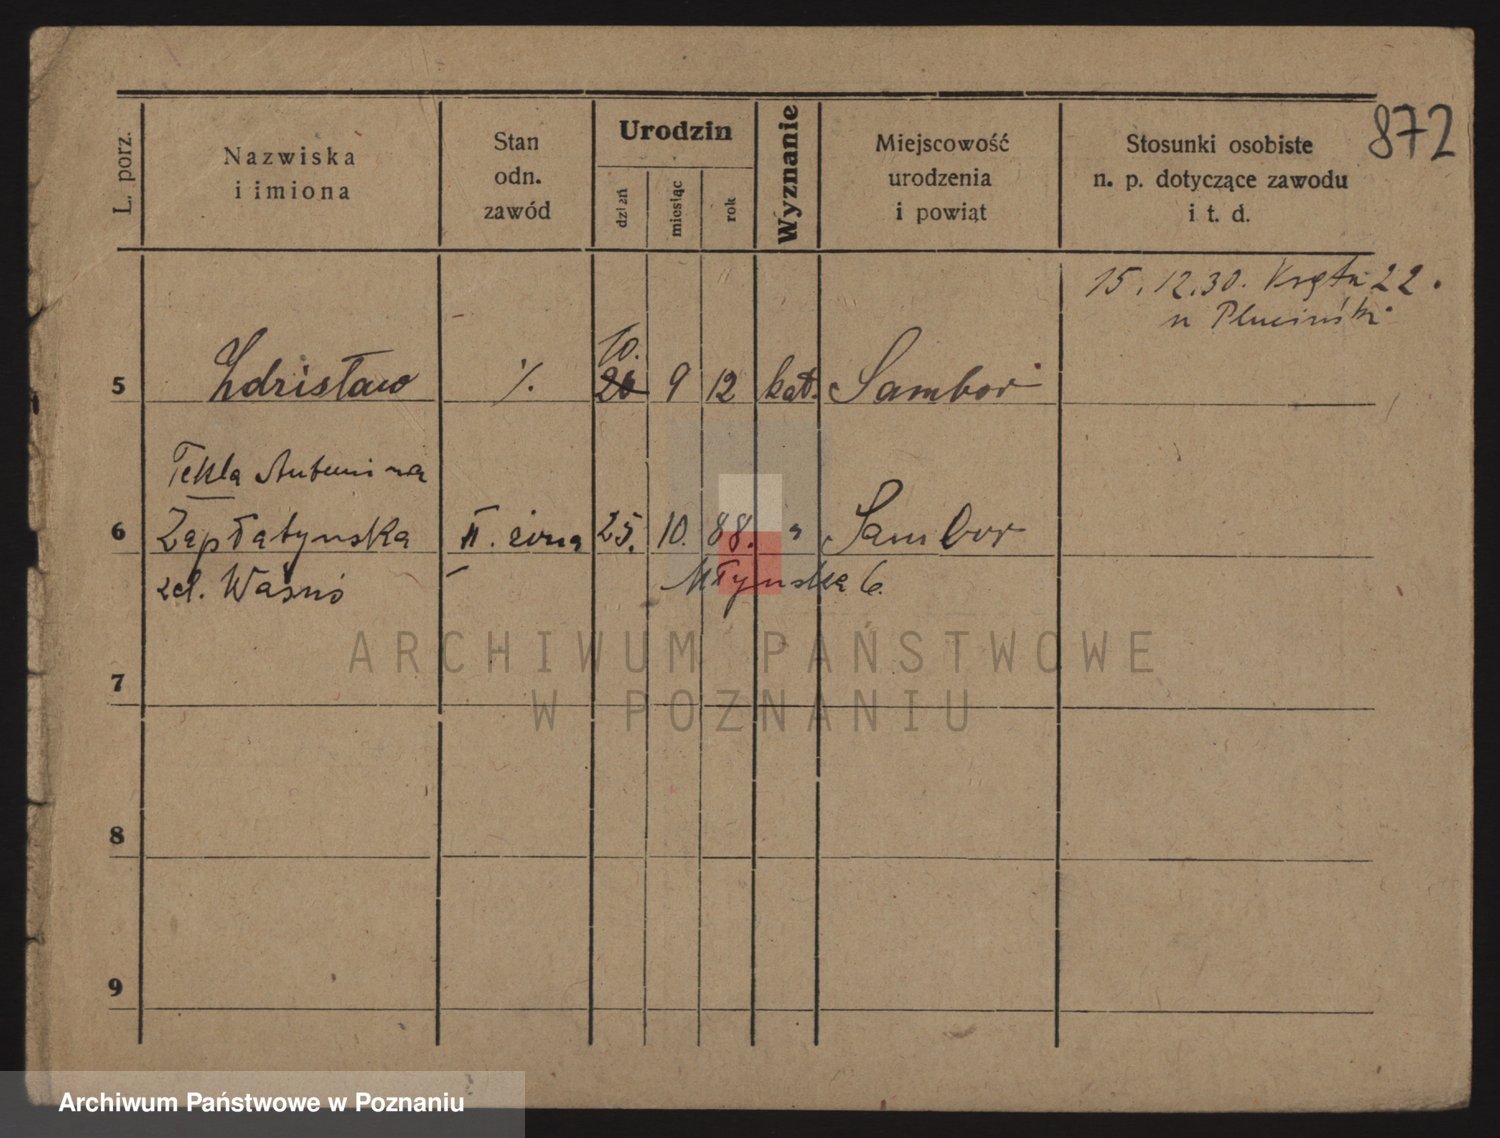 872
L. porz.
Nazwiska
i imiona
Stan
odn.
zawód
Urodzin
dzień
miesiąc
rok
Wyznanie
Miejscowość
urodzenia
i powiąt
Stosunki osobiste
n. p. dotyczące zawodu
i t. d.
15.12.30. Kręta 22.
u Pluciński
10.
5 Zdzisław % 20 9 12 kat. Sambor
Tekla Antonina
6 Zapłatyńska II. żona 25. 10. 88. " Sambor
Młyńska 6.
ARCHIWUM PAŃSTWOWE
7
W POZNANIU
8
9
Archiwum Państwowe w Poznaniu